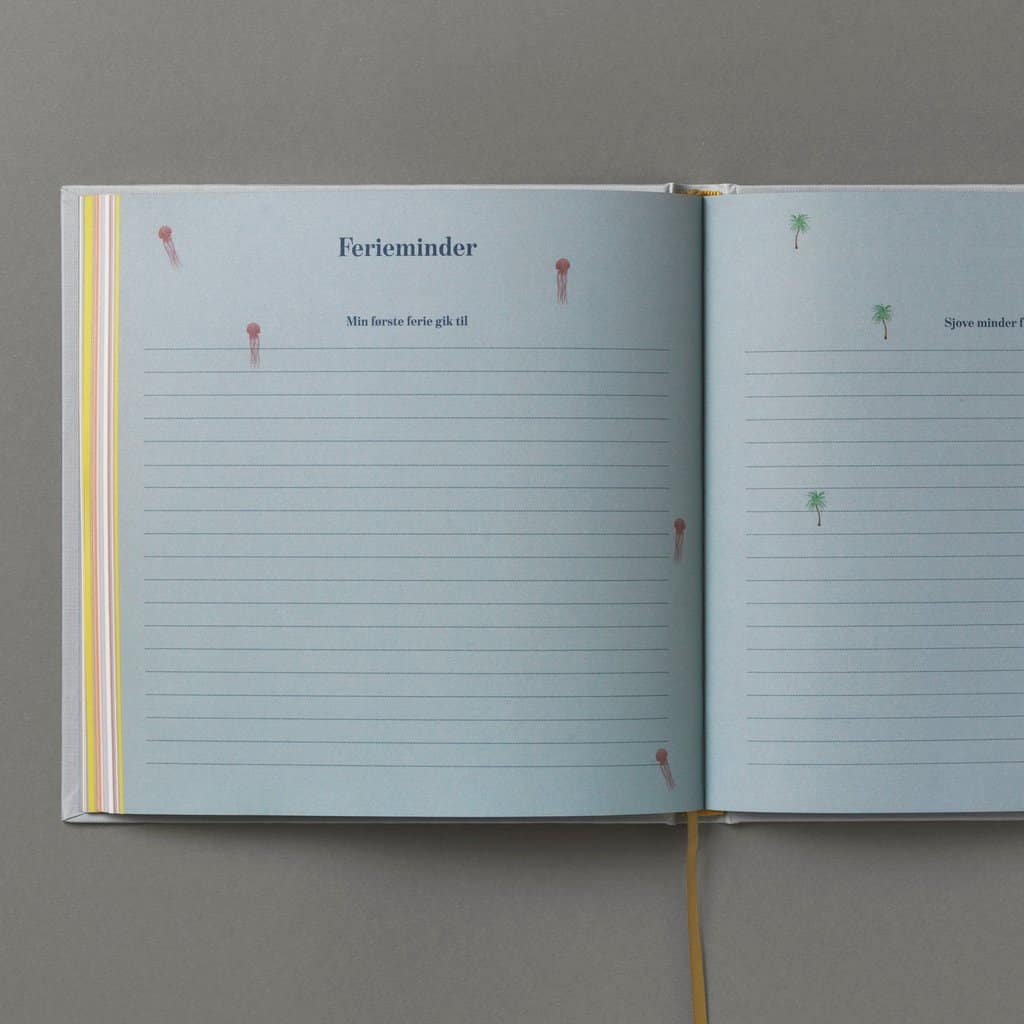 Ferieminder
Min første ferie gik til
Sjove minder f